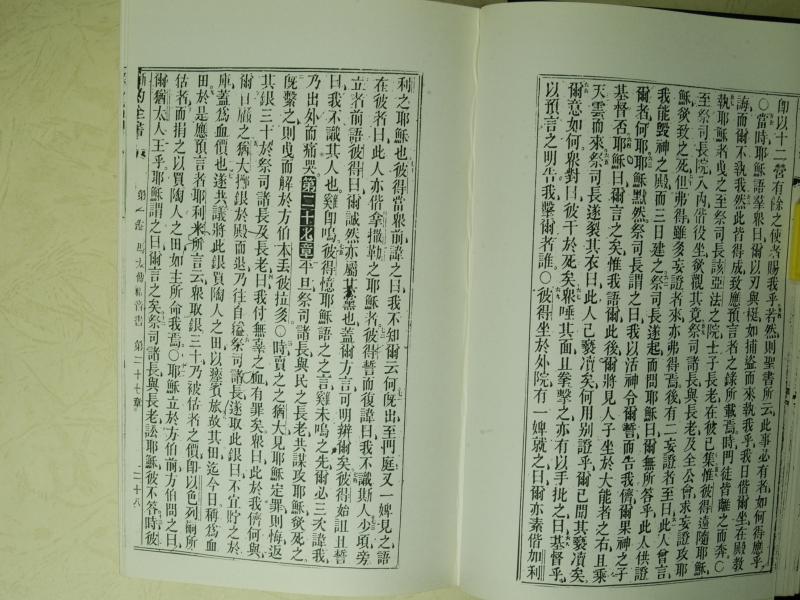 即以十二營有餘之使者賜我乎若然則聖書所云此事必有者如何得應乎
〇當時耶穌語羣眾曰爾以刃與梃如捕盜而來執我乎我日偕爾坐在殿教
誨而爾不執我然此皆得成致應預言者之錄所載焉時門徒皆離之而奔〇
執耶穌者曳之至祭司長該亞法之院士子長老在彼已集惟彼得遠隨耶穌
至祭司長院入內偕役坐欲觀其竟祭司諸長與長老及全公會求妄證攻耶
穌欲致之死但弗得雖多妄證者來亦弗得焉後有二妄證者至曰此人曾言
我能毀神之殿而三日建之祭司長遂起而問耶穌曰爾無所答乎此人供證
爾者何耶耶穌默然祭司長謂之曰我以活神令爾誓而告我儕爾果神之子
基督否耶穌曰爾言之矣惟我語爾此後爾將見人子坐於大能者之右且乘
天雲而來祭司長遂裂其衣曰此人已褻瀆矣何用別證乎爾已聞其褻瀆矣
爾意如何眾對曰彼干於死矣眾唾其面且拳擊之亦有以手批之曰基督乎
以預言之明告我擊爾者誰〇彼得坐於外院有一婢就之曰爾亦素偕加利
利之耶穌也彼得當眾前諱之曰我不知爾云何旣出至門庭又一婢見之語
在彼者曰此人亦偕拿撒勒之耶穌者彼得誓而復諱曰我不識斯人少頃旁
立者前語彼得曰爾誠然亦屬其黨也蓋爾方言可明辨爾矣彼得始詛且誓
曰我不識其人也雞卽鳴彼得憶耶穌語之之言雞未鳴之先爾必三次諱我
乃出外而痛哭第二十七章平旦祭司諸長與民之長老共謀攻耶穌欲死之
旣繫之則曳而解於方伯本丟彼拉多〇時賣之之猶大見耶穌定罪則悔返
其銀三十於祭司諸長及長老曰我付無辜之血有罪矣眾曰此於我儕何與
爾自顧之猶大擲銀於殿而退乃往自縊祭司諸長遂取此銀曰不宜貯之於
庫蓋爲血價也遂共議將此銀買陶人之田以瘞賓旅故其田迄今日稱爲血
田於是應預言者耶利米所言云眾取銀三十乃被估者之價卽以色列爾所
估者而捐之以買陶人之田如主所命我焉〇耶穌立於方伯前方伯問之曰
爾猶太人王乎耶穌謂之曰爾言之矣祭司諸長與長老訟耶穌彼不答時彼
馬太傳福音書 第二十七章 二十八